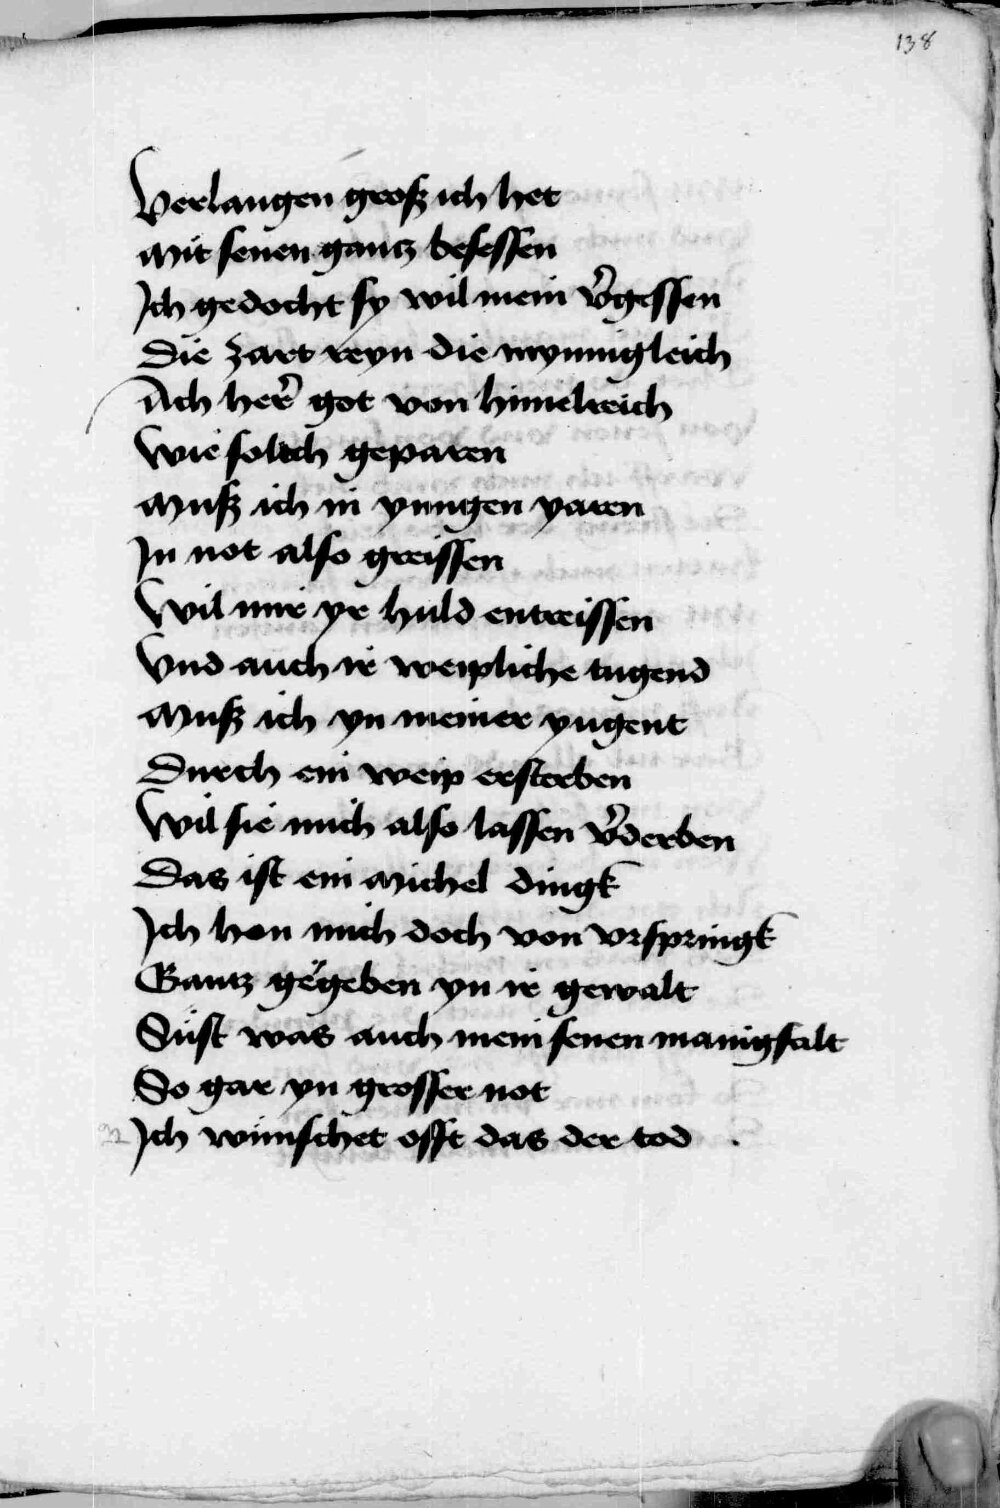 138
Verlangen groß ich het
Mit senen gantz besessen
Ich gedocht sy wil mein v̾gessen
Die zart reyn die mynnigleich
Ach her̾ got von himelreich
Wie solich geparen
Muß ich in yungen yaren
In not also greissen
Wil mir yr huld entreissen
Vnd auch ir weipliche tugend
Muß ich yn meiner yugent
Durch ein weip ersterben
Wil sie mich also lassen v̾derben
Das ist ein michel dingk
Ich hon mich doch von vrspringk
Gantz gegeben yn ir gewalt
Sust was auch mein senen manigfalt
So gar yn grosser not
Ich wünschet offt das der tod